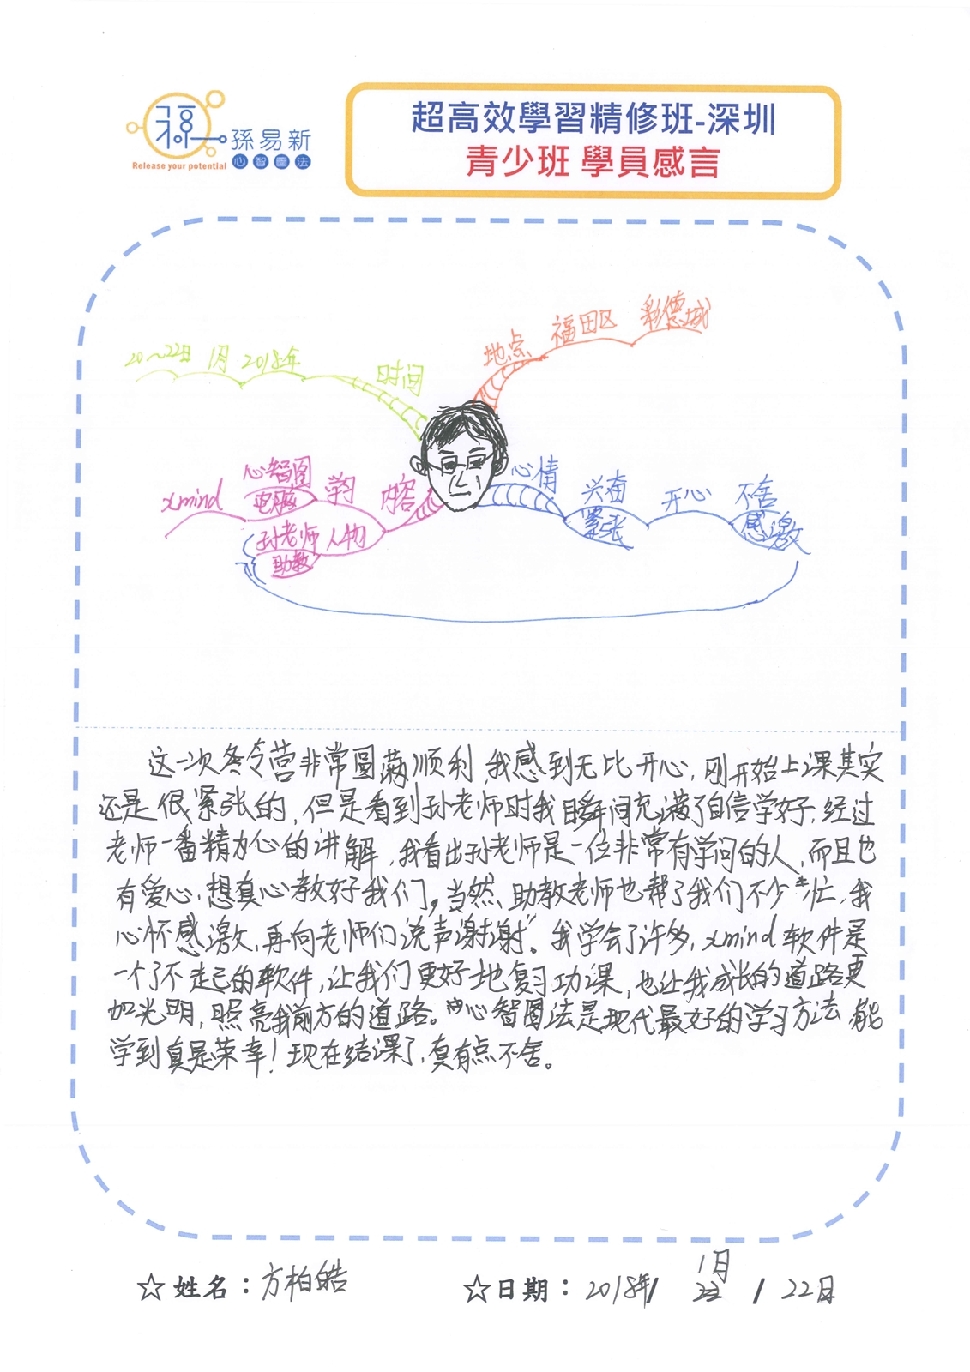 孫易新
心智圖法
Release your potential
超高效學習精修班-深圳
青少班 學員感言
地点 福田区 彩德城
20~22日 1月 2018年 时间
心智图
xmind 电脑 学习 内容
孙老师 人物
助教
心情 兴奋 开心 不舍
紧张 感激
这一次冬令营非常圆满顺利,我感到无比开心,刚开始上课其实
还是很紧张的,但是看到孙老师时我瞬间充满了自信学好,经过
老师一番精力心的讲解,我看出孙老师是一位非常有学问的人,而且也
有爱心,想真心教好我们。当然,助教老师也帮了我们不少忙,我
心怀感激,再向老师们说声"谢谢"。我学会了许多,xmind软件是
一个了不起的软件,让我们更好地复习功课,也让我成长的道路更
加光明,照亮我前方的道路。心智图法是现代最好的学习方法,能
学到真是荣幸!现在结课了,真有点不舍。
☆姓名:方柏皓 ☆日期:2018年/ 1月 / 22日